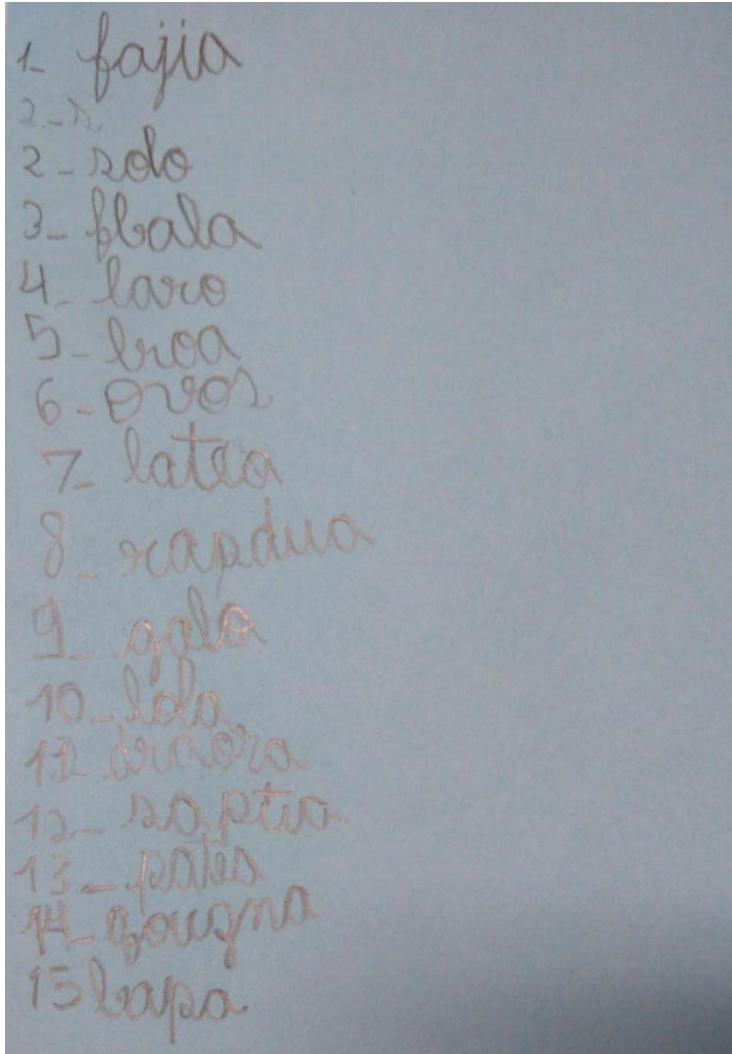 1- fajia
2-s
2- solo
3- fbala
4- laro
5- broa
6- ovos
7- latia
8- rapdua
9- galo
10- lola
11 áraora
12- saptio
13- patis
14- gougna
15 bapa